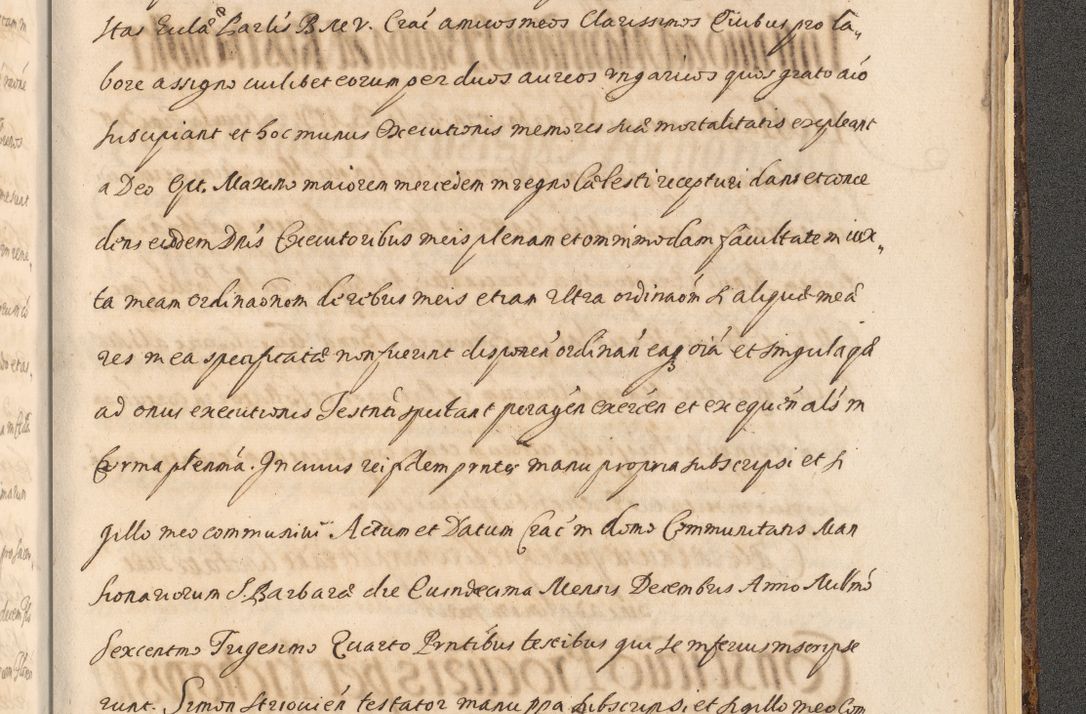 stas Eccłæ Parłis B M V. Crac̃ amicos meos Clarissimos Quibus pro la„
bore assigno cuilibet eorum per duos aureos Vngaricos quos grato aĩo
suscipiant et hoc munus Executionis memores suæ mortalitatis expleant
a Deo Opt. Maximo maiorem mercedem in regno Cælesti recepturi dans et conce
dens eisdem Dnis Executoribus meis plenam et omnimodam facultatem iux„
ta meam ordinaõnem de rebus meis etiam Vltra ordinaõm si aliquæ meæ
res in ea specificatæ non fuerunt disponeñ ordinañ eaq oĩa et singula quæ
ad onus executionis Testñti spectant perageñ exerceñ et exequeñ alš in
Forma plenria. In cuius rei fidem prntes manu propria subscripsi et si
gillo meo communivi Actum et Datum Crac̃ in domo Communitatis Man
sionariorum S. Barbaræ die Quindecima Mensis Decembris Anno Millmo
Sexcentmo Trigesimo Quarto Prntibus testibus qui se inferius inscripse
runt. Simon testator manu ppa subscripsi et sigillo meo com